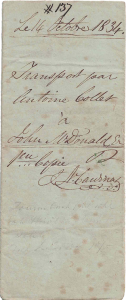 #157
Le 14 Octobre 1834
Transport par
Antoine Collet
à
John McDonald
pour Copie